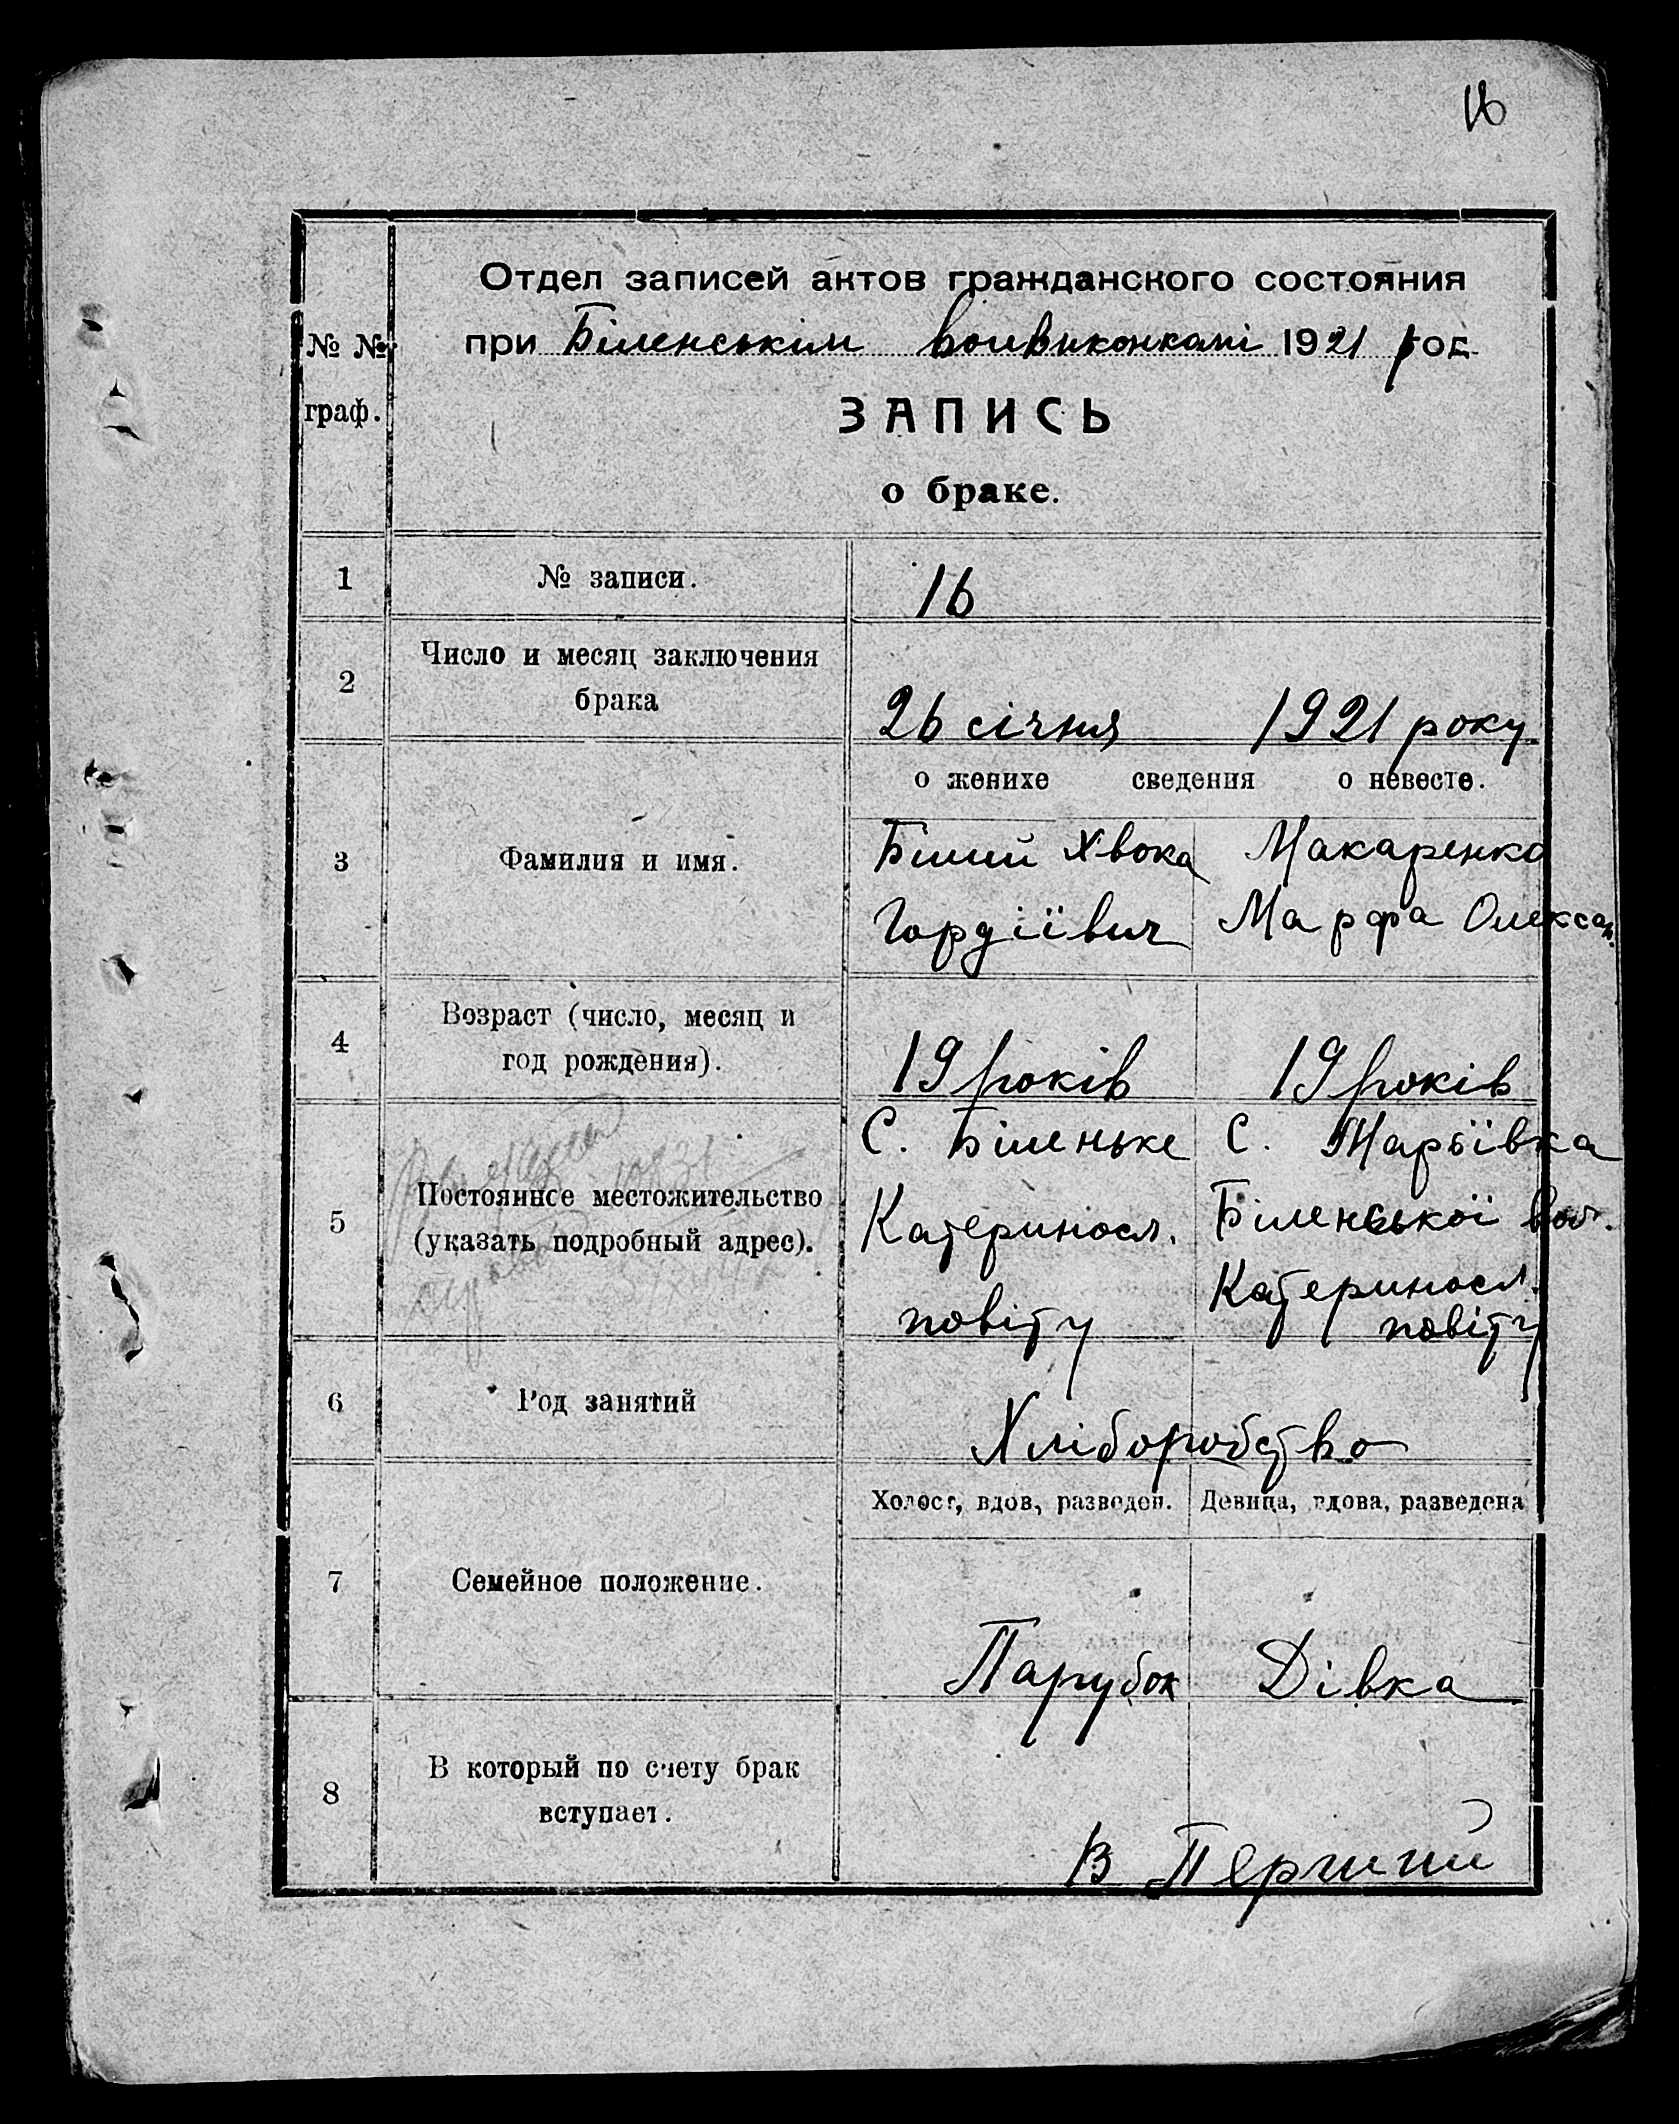 16
Отдел записей актов гражданского состояния
№ №
при Біленськім волвиконкомі 1921 год
граф.
ЗАПИСЬ
о браке.
1
№ записи.
16
2
Число и месяц заключения
брака
26 січня 1921 року
о женихе сведения о невесте.
3
Фамилия и имя.
Білий Хвока
Гордіївич
Макаренко
Марфа Олексан.
4
Возраст (число, месяц и
год рождения).
19 років
19 років
5
Постоянное местожительство
(указать подробный адрес).
С. Біленьке
Катериносл.
повіту
С. Марьївка
Біленської вол.
Катериносл.
повіту
6
Род занятий
Хліборобство
7
Семейное положение.
Холост, вдов, разведен.
Девица, вдова, разведена
Парубок
Дівка
8
В который по счету брак
вступает.
В Перший